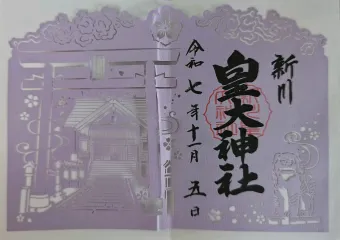 新川
皇大神社
令和七年十一月五日